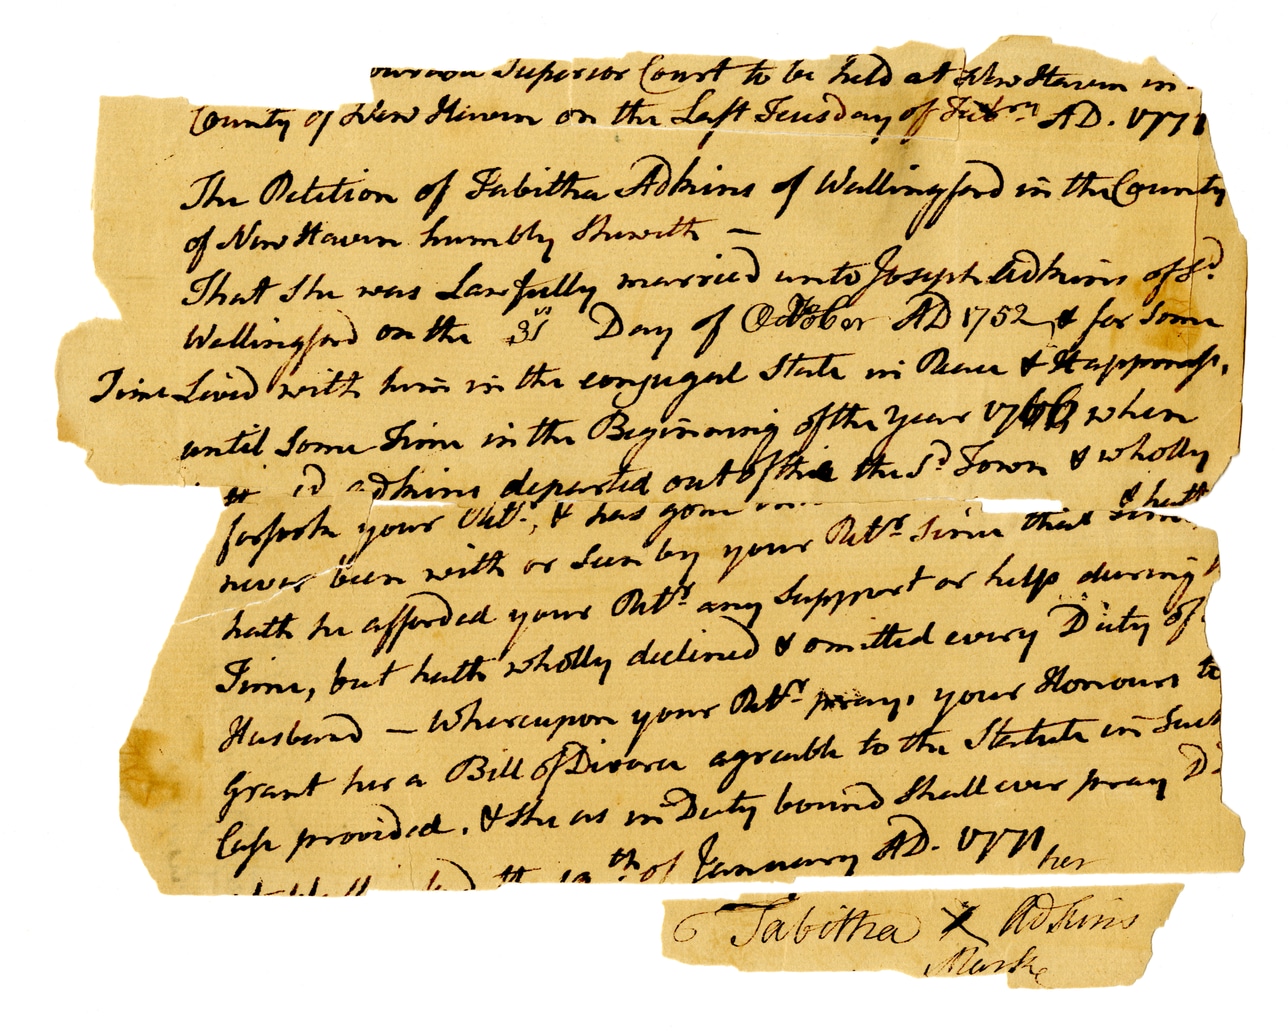 Superior Court to be held at New Haven in
County of New Haven on the Last Tuesday of Febry. AD. 1771
The Petition of Tabitha Adkins of Wallingford in the County
of New Haven humbly Sheweth —
That She was Lawfully married unto Joseph Adkins of Sd.
Wallingford on the 31st Day of October AD 1752, & for Some
Time Lived with him in the conjugal State in Peace & Happiness,
until Some Time in the Beginning of the Year 1766, when
Adkins departed out of the Sd. Town & wholly
forsook your Petr., & has gone & hath
never been with or Seen by your Petr. Since that time
hath he afforded your Petr. any Support or help during
Time, but hath wholly declined & omitted every Duty of
Husband — Whereupon your Petr. pray, your Honours to
Grant her a Bill of Divorce agreable to the Statute in Such
Case provided. & She as in Duty bound Shall ever pray D
th of January AD. 1771
her
Tabitha X Adkins
Marke